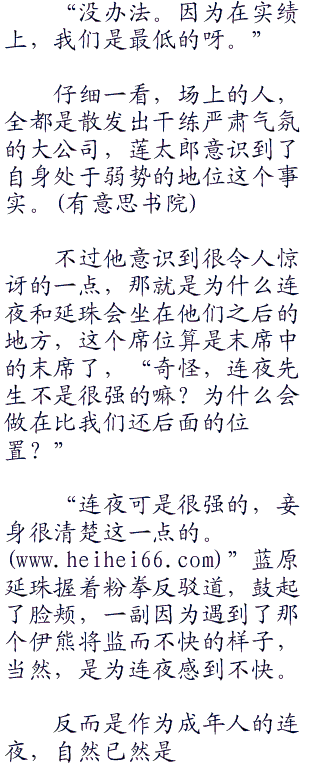 “没办法。因为在实绩
上，我们是最低的呀。”
仔细一看，场上的人，
全都是散发出干练严肃气氛
的大公司，莲太郎意识到了
自身处于弱势的地位这个事
实。(有意思书院)
不过他意识到很令人惊
讶的一点，那就是为什么连
夜和延珠会坐在他们之后的
地方，这个席位算是末席中
的末席了，“奇怪，连夜先
生不是很强的嘛？为什么会
做在比我们还后面的位
置？”
“连夜可是很强的，妾
身很清楚这一点的。
(www.heihei66.com)”蓝原
延珠握着粉拳反驳道，鼓起
了脸颊，一副因为遇到了那
个伊熊将监而不快的样子，
当然，是为连夜感到不快。
反而是作为成年人的连
夜，自然已然是